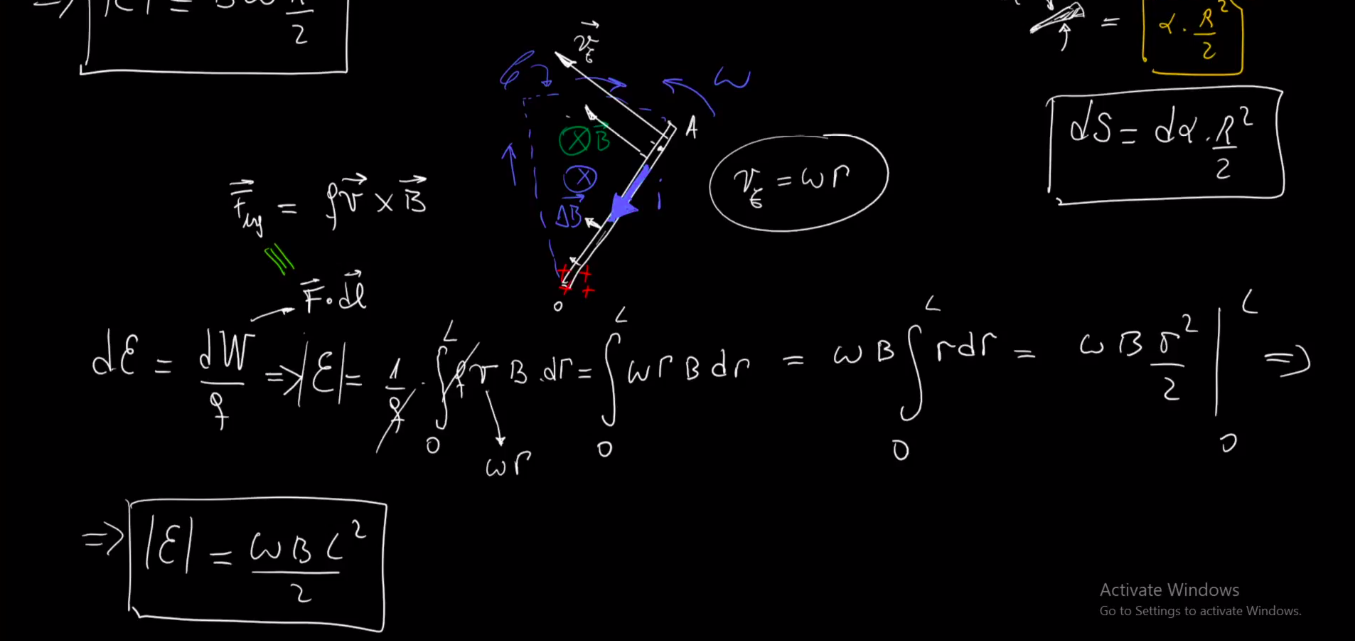 => |ℰ| = Bω R²/2
= α · R²/2
v⃗_ε
ω
A
⊗ B⃗
⊗
ΔB⃗
i
+ +
+ +
o
v_ε = ωr
dS = dα · R²/2
F⃗ = q v⃗ × B⃗
F⃗ · dl⃗
dℰ = dW/q => |ℰ| = 1/q · ∫₀ᴸ q v B · dr = ∫₀ᴸ ω r B dr = ωB ∫₀ᴸ r dr = ωB r²/2 |₀ᴸ =>
ωr
=> |ℰ| = ωBL²/2
Activate Windows
Go to Settings to activate Windows.